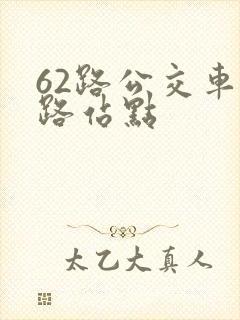 62路公交車
路佔點
太乙大真人